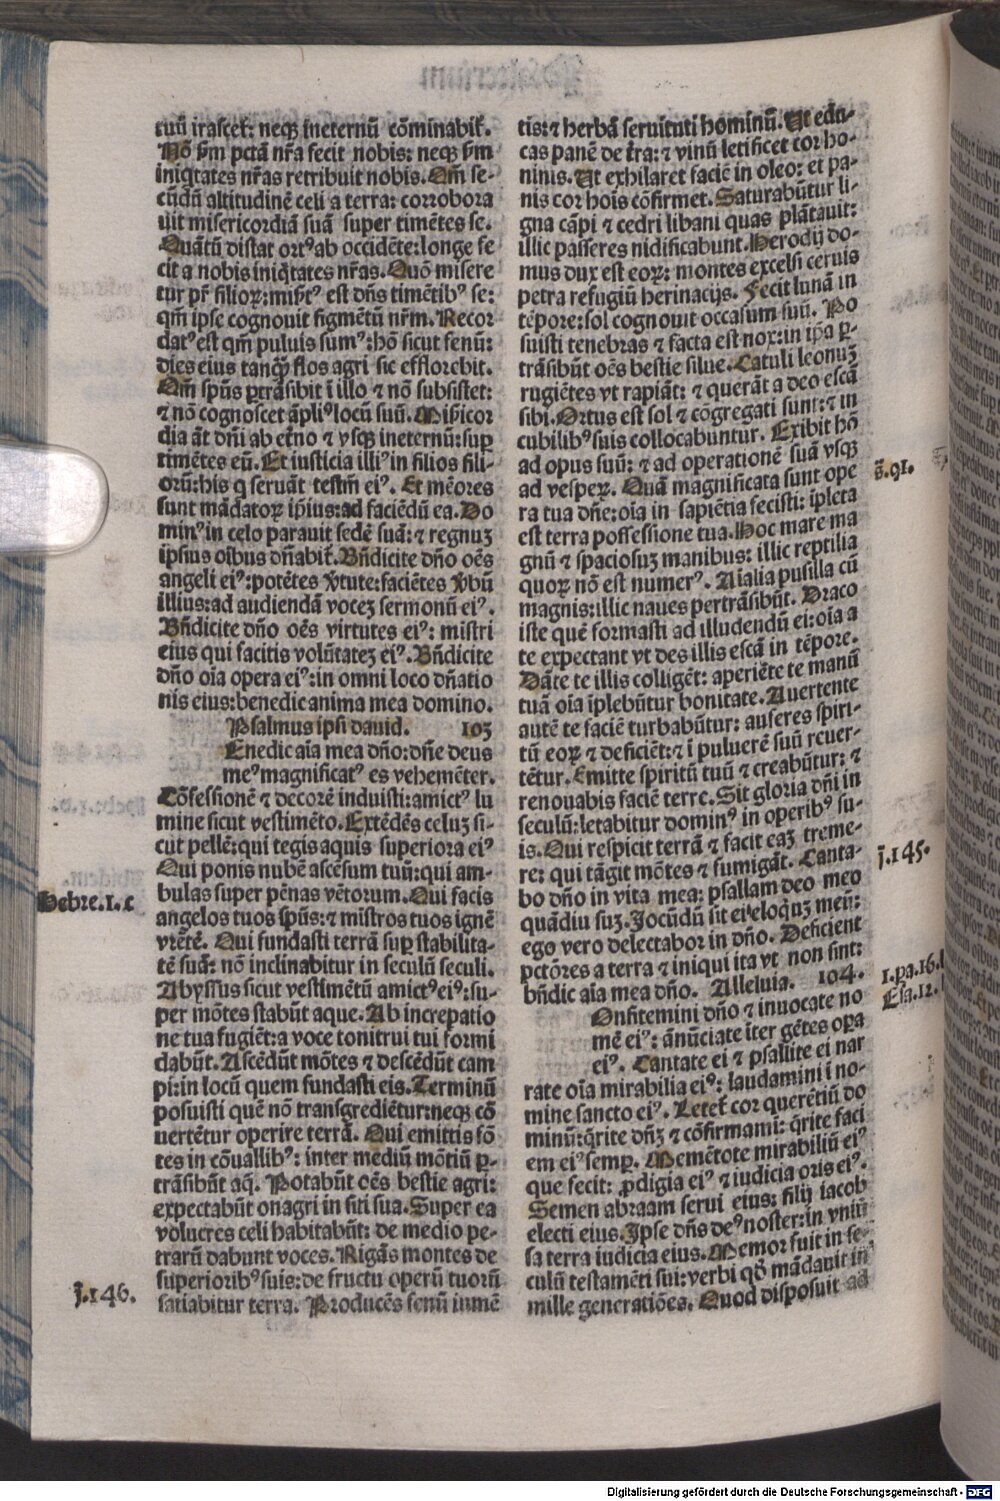 tuū irascet᷑: neqꝫ ineternū cōminabit᷑.
Nō ẜm pctā nr̄a fecit nobis: neqꝫ ẜm
iniq̇tates nr̄as retribuit nobis. Qm̄ se-
cūdū altitudinē celi a terra: corrobora
uit misericordiā suā super timētes se.
Quātū distat ortꝰ ab occidēte: longe fe
cit a nobis iniq̇tates nr̄as. Quō misere
tur pr̄ filioꝝ: misertꝰ est dn̄s timētibꝰ se:
qm̄ ipse cognouit figmētū nr̄m. Recor
datꝰ est qm̄ puluis sumꝰ: hō sicut fenū:
dies eius tanqꝫ flos agri sic efflorebit.
Qm̄ sp̄us ꝑtrāsibit ī illo ⁊ nō subsistet:
⁊ nō cognoscet āpliꝰ locū suū. Mis̄icor
dia āt dn̄i ab et̄no ⁊ vsqꝫ ineternū: suꝑ
timētes eū. Et iusticia illiꝰ in filios fili-
orū: his q seruāt testm̄ eiꝰ. Et mēores
sunt mādatoꝝ ip̄ius: ad faciēdū ea. Do
minꝰ in celo parauit sedē suā: ⁊ regnuꝫ
ipsius oībus dn̄abit᷑. Bn̄dicite dn̄o oēs
angeli eiꝰ: potētes v̄tute: faciētes v̄bū
illius: ad audiendā voceꝫ sermonū eiꝰ.
Bn̄dicite dn̄o oēs virtutes eiꝰ: mīstri
eius qui facitis volūtateꝫ eiꝰ. Bn̄dicite
dn̄o oīa opera eiꝰ: in omni loco dn̄atio
nis eius: benedic anima mea domino.
Psalmus ipsi dauid. 103
Enedic aīa mea dn̄o: dn̄e deus
meꝰ magnificatꝰ es vehemēter.
Cōfessionē ⁊ decorē induisti: amictꝰ lu
mine sicut vestimēto. Extēdēs celuꝫ si-
cut pellē: qui tegis aquis superiora eiꝰ
Qui ponis nubē ascēsum tuū: qui am-
bulas super pēnas vētorum. Qui facis
angelos tuos sp̄us: ⁊ mīstros tuos ignē
vrētē. Qui fundasti terrā suꝑ stabilita-
tē suā: nō inclinabitur in seculū seculi.
Abyssus sicut vestimētū amictꝰ eiꝰ: su-
per mōtes stabūt aque. Ab increpatio
ne tua fugiēt: a voce tonitrui tui formi
dabūt. Ascēdūt mōtes ⁊ descēdūt cam
pi: in locū quem fundasti eis. Terminū
posuisti quē nō transgrediētur: neqꝫ cō
uertētur operire terrā. Qui emittis fō
tes in cōuallibꝰ: inter mediū mōtiū ꝑ-
trāsibūt aq̄. Potabūt oēs bestie agri:
expectabūt onagri in siti sua. Super ea
volucres celi habitabūt: de medio pe-
trarū dabunt voces. Rigās montes de
superioribꝰ suis: de fructu operū tuorū
satiabitur terra. Producēs fenū iumē
Hebre.1.c
j̄.146.
tis: ⁊ herbā seruituti hominū. Ut edu-
cas panē de t̄ra: ⁊ vinū letificet cor ho-
ninis. Ut exhilaret faciē in oleo: et pa-
nis cor hoīs cōfirmet. Saturabūtur li-
gna cāpi ⁊ cedri libani quas plātauit:
illic passeres nidificabunt. Herodij do-
mus dux est eoꝝ: montes excelsi ceruis
petra refugiū herinacijs. Fecit lunā in
tēpore: sol cognouit occasum suū. Po
suisti tenebras ⁊ facta est nox: in ip̄a ꝑ-
trāsibūt oēs bestie silue. Catuli leonuꝫ
rugiētes vt rapiāt: ⁊ querāt a deo escā
sibi. Ortus est sol ⁊ cōgregati sunt: ⁊ in
cubilibꝰ suis collocabuntur. Exibit hō
ad opus suū: ⁊ ad operationē suā vsqꝫ
ad vesperꝝ. Quā magnificata sunt ope
ra tua dn̄e: oīa in sapiētia fecisti: īpleta
est terra possessione tua. Hoc mare ma
gnū ⁊ spaciosuꝫ manibus: illic reptilia
quoꝝ nō est numerꝰ. Aīalia pusilla cū
magnis: illic naues pertrāsibūt. Draco
iste quē formasti ad illudendū ei: oīa a
te expectant vt des illis escā in tēpore.
Dāte te illis colligēt: aperiēte te manū
tuā oīa īplebūtur bonitate. Auertente
autē te faciē turbabūtur: auferes spiri-
tū eoꝝ ⁊ deficiēt: ⁊ ī puluerē suū reuer-
tētur. Emitte spiritū tuū ⁊ creabūtur: ⁊
renouabis faciē terre. Sit gloria dn̄i in
seculū: letabitur dominꝰ in operibꝰ su-
is. Qui respicit terrā ⁊ facit eaꝫ treme-
re: qui tāgit mōtes ⁊ fumigāt. Canta-
bo dn̄o in vita mea: psallam deo meo
quādiu suꝫ. Jocūdū sit ei eloq̄uꝫ meū:
ego vero delectabor in dn̄o. Deficient
pctōres a terra ⁊ iniqui ita vt non sint:
bn̄dic aīa mea dn̄o. Alleluia. 104.
Onfitemini dn̄o ⁊ inuocate no
mē eiꝰ: ānūciate īter gētes oꝑa
eiꝰ. Cantate ei ⁊ psallite ei nar
rate oīa mirabilia eiꝰ: laudamini ī no-
mine sancto eiꝰ. Letet᷑ cor querētiū do
minū: q̄rite dn̄ꝫ ⁊ cōfirmamī: q̄rite faci
em eiꝰ semꝑ. Memētote mirabiliū eiꝰ
que fecit: ꝓdigia eiꝰ ⁊ iudicia oris eiꝰ.
Semen abraam serui eius: filij iacob
electi eius. Ipse dn̄s deꝰ noster: in vniū
sa terra iudicia eius. Memor fuit in se-
culū testamēti sui: verbi qd̄ mādauit in
mille generatiōes. Quod disposuit ad
s̄.91.
j̄.145.
1.pa.16.
Esa.12.
Digitalisierung gefördert durch die Deutsche Forschungsgemeinschaft - DFG